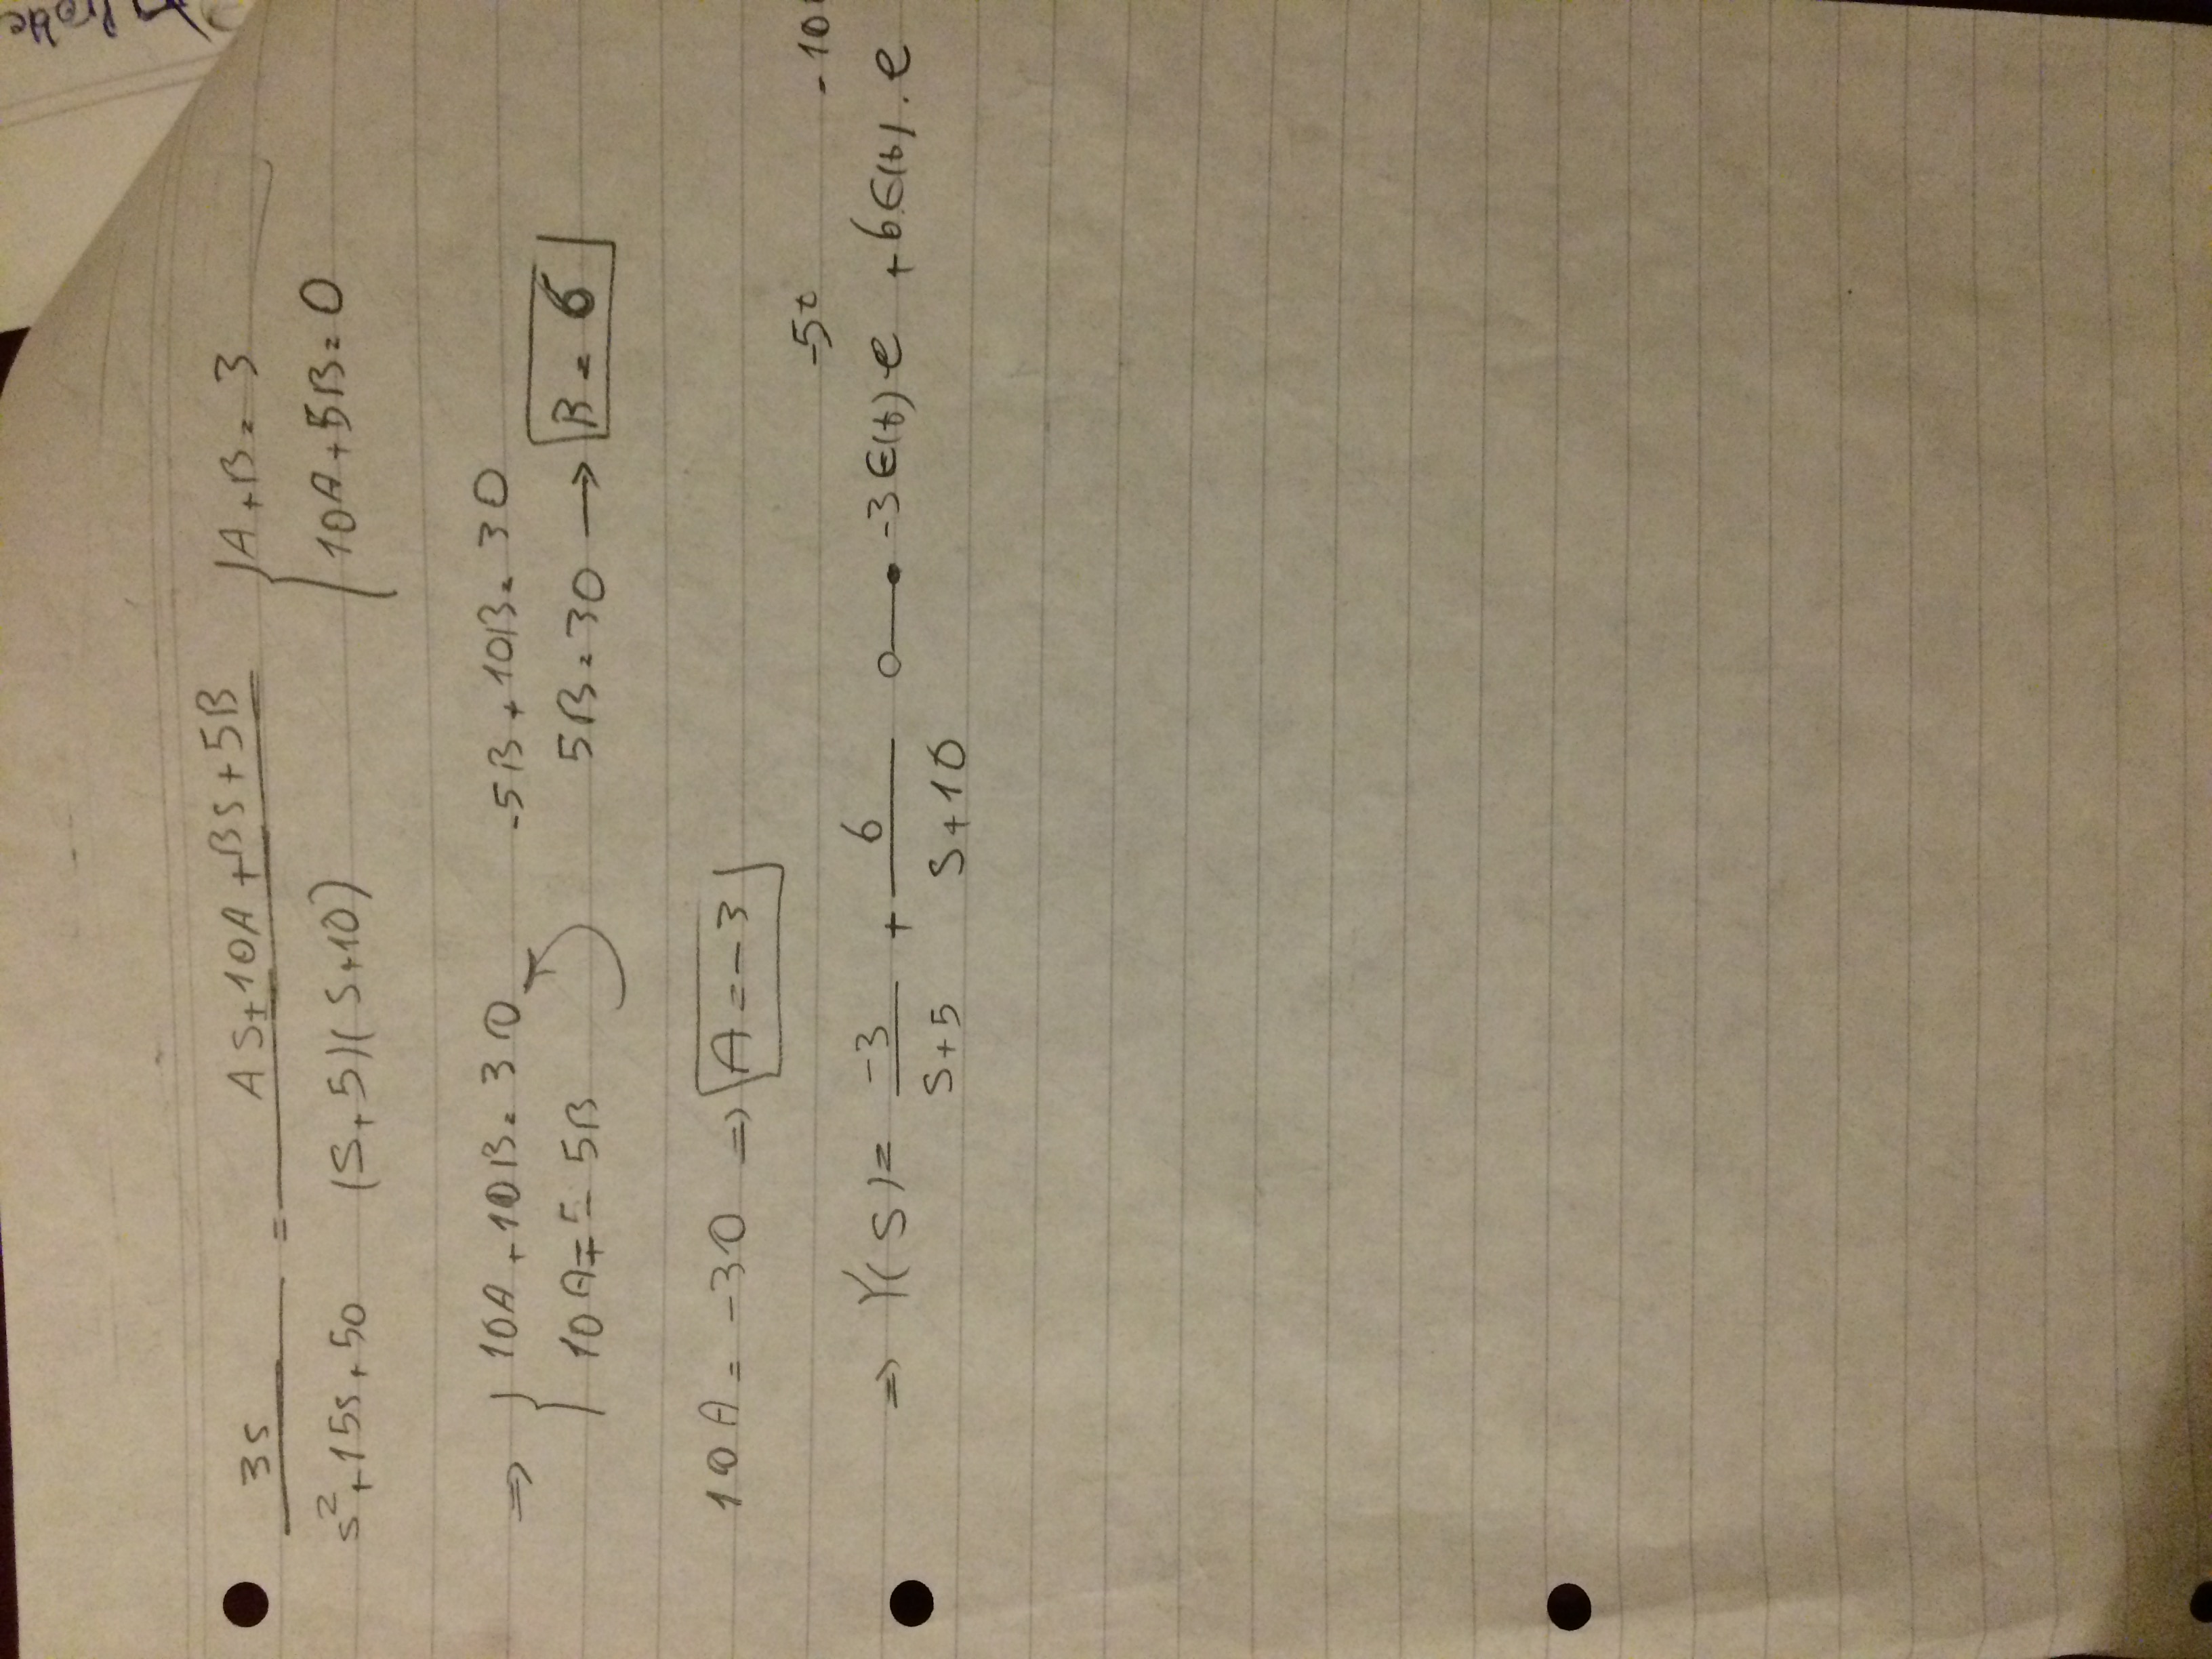 3s / s²+15s+50 = AS+10A+BS+5B / (S+5)(S+10) { A+B=3
10A+5B=0
⇒ { 10A+10B=30 -5B+10B=30
10A = - 5B 5B=30 → B=6
10A=-30 ⇒ A=-3
⇒ Y(S)= -3/S+5 + 6/S+10 ○—● -3ϵ(t)e^-5t +6ϵ(t).e^-10